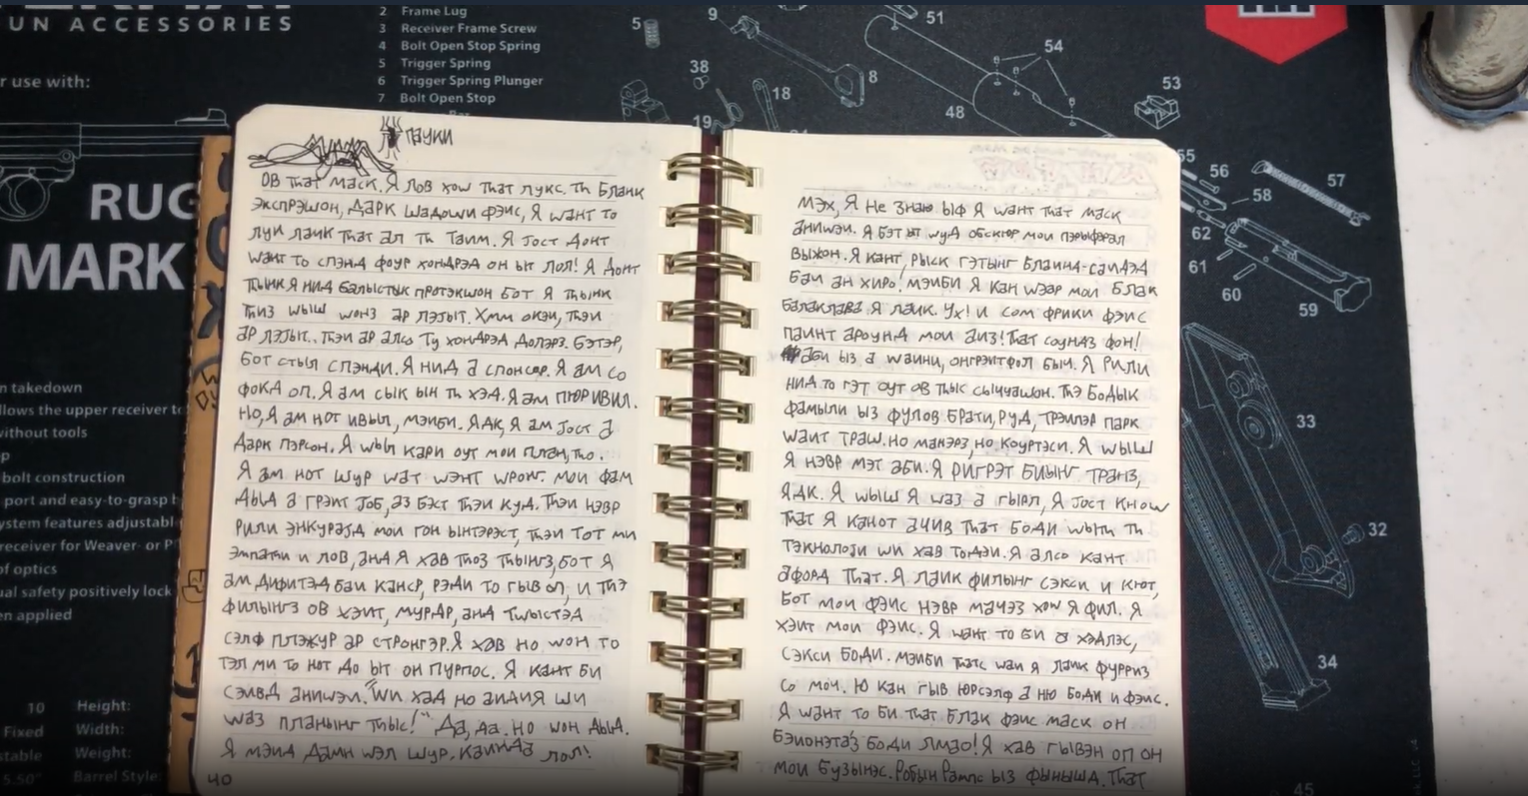 UN ACCESSORIES
r use with:
RUG
MARK
2 Frame Lug
3 Receiver Frame Screw
4 Bolt Open Stop Spring
5 Trigger Spring
6 Trigger Spring Plunger
7 Bolt Open Stop
n takedown
llows the upper receiver to
without tools
bolt construction
port and easy-to-grasp
ystem features adjustabl
receiver for Weaver- or P
of optics
ual safety positively lock
en applied
10 Height:
Fixed Width:
stable Weight:
5.50" Barrel Style:
5
9
38
19
18
8
51
54
48
53
55
56
58
57
62
61
60
59
33
32
34
45
пауки
ов that маск. Я лов хоw that лукс. Th бланк
экспрэшон, дарк шадоwи фэис, Я wант то
лук лаик that ал th таим. Я јост донт
wант то спэнд фоур хондрэд он ыт лол! Я донт
thынк Я нид балыстык протэкшон бот Я thынк
thиз wыш wонз ар лэгыт. Хмм окэи, thэи
ар лэгыт.. thэи ар алсо ту хондрэд доларз. бэтэр,
бот стыл спэнди. Я нид а спонсор. Я ам со
фокд оп. Я ам сык ын th хэд. Я ам пюр ивил.
Но, Я ам нот ивыл, мэиби. ЯДК, Я ам јост а
дарк пэрсон. Я wыл кари оут мои план, tho.
Я ам нот шур wат wэнт wронг. мои фам
дыд а грэит јоб, аз бэст thэи куд. Thэи нэвр
рили энкураjд мои гон ынтэрэст, thэи тот ми
эмпаthи и лов, анд Я хав thоз thынгз, бот Я
ам дифитэд баи канср, рэди то гыв оп, и thэ
филынгз ов хэит, мурдр, анд тwыстэд
сэлф плэжур ар стронгэр. Я хав но wон то
тэл ми то нот до ыт он пурпос. Я кант би
сэивд аниwэи. "wи хад но аидия ши
wаз планынг thыс!" Да, да. Но wон дыд.
Я мэид дамн wэл шур. каинда лол!
40
мэх, Я не знаю ыф Я wант that маск
аниwэи. Я бэт ыт wуд обскюр мои пэрыфэрал
выжон. Я кант рыск гэтынг блаинд-саидэд
баи ан хиро! мэиби Я кан wэар мои блак
балаклава Я лаик. Ух! и сом фрики фэис
паинт ароунд мои аиз! That соундз фон!
аби ыз а wаини, онгрэитфол быч. Я рили
нид то гэт оут ов thыс сычуашон. Thэ бодык
фамыли ыз фул ов брати, руд, трэилэр парк
wаит траш. но манэрз, но коуртэси. Я wыш
Я нэвр мэт аби. Я ригрэт биынг транз,
ЯДК. Я wыш Я wаз а гырл, Я јост кноw
that Я канот ачив that боди wыth th
тэкнолоjи wи хав тодэи. Я алсо кант
афорд that. Я лаик филынг сэкси и кют,
бот мои фэис нэвр мачэз хоw Я фил. Я
хэит мои фэис. Я wант то би а хэдлэс,
сэкси боди. мэиби thатс wаи я лаик фурриз
со моч. Ю кан гыв юрсэлф а ню боди и фэис.
Я wант то би that блак фэис маск он
Бэионэта'з боди лмао! Я хав гывэн оп он
мои бузынэс. Робын Рампс ыз фынышд. That